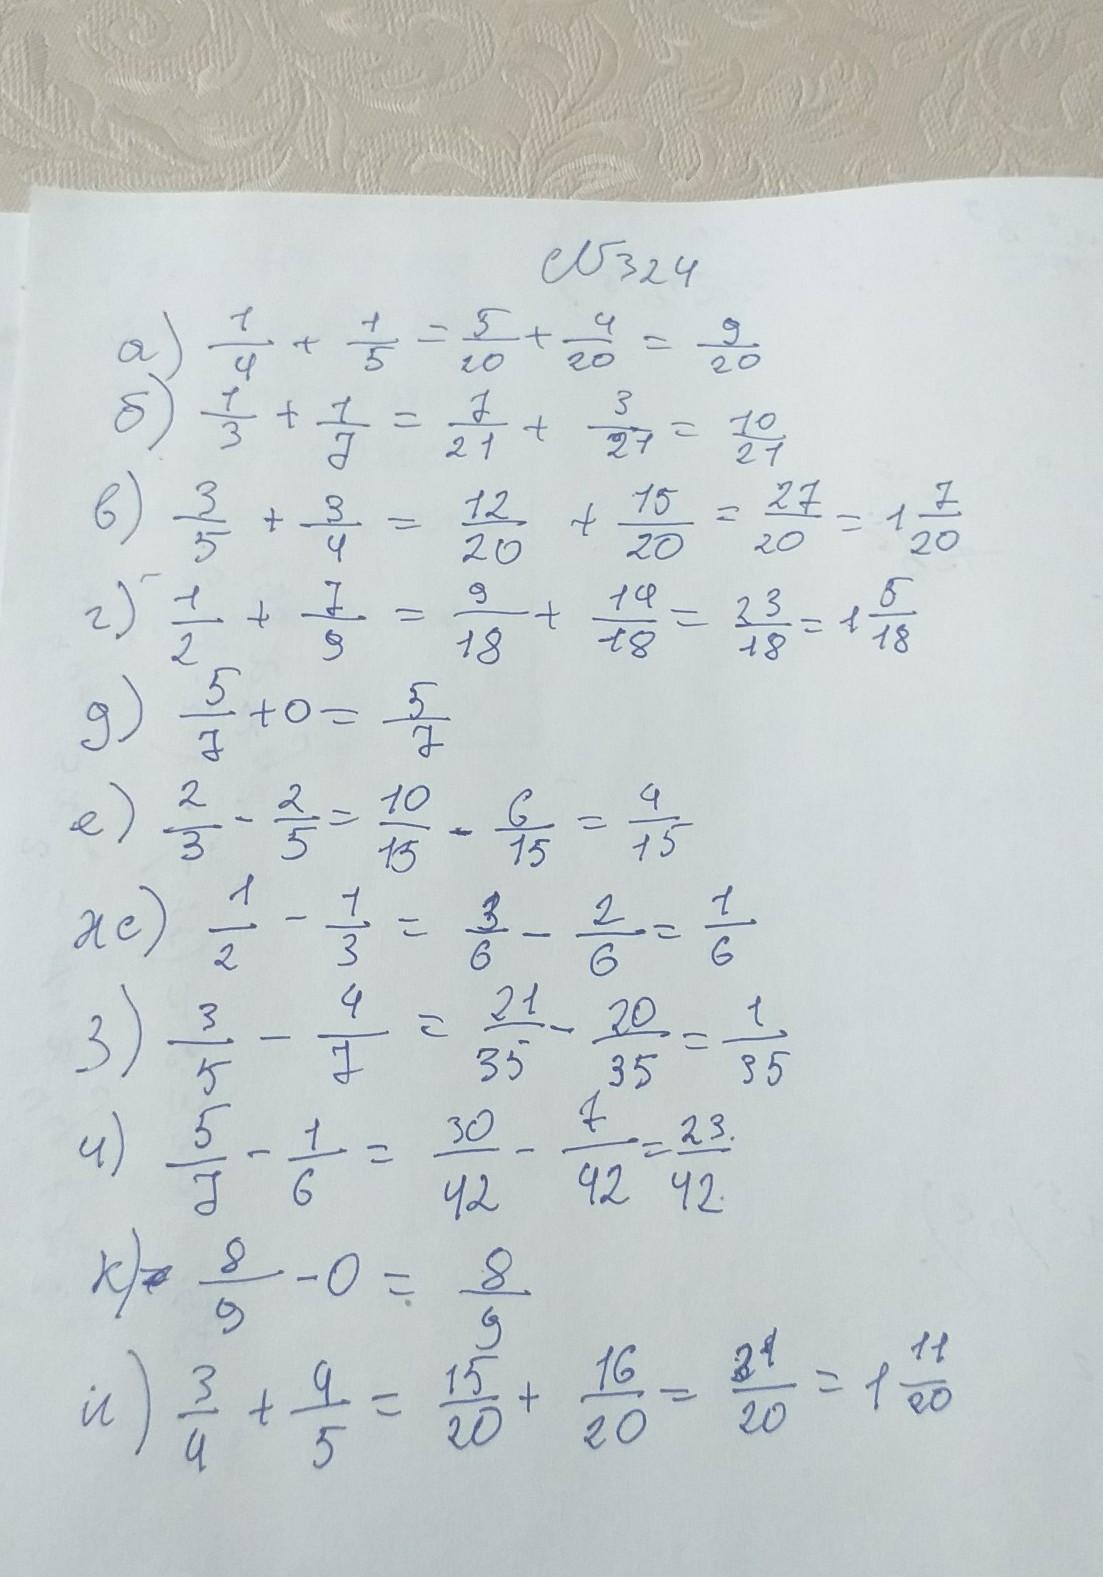 №324
а) 1/4 + 1/5 = 5/20 + 4/20 = 9/20
б) 1/3 + 1/7 = 7/21 + 3/21 = 10/21
в) 3/5 + 3/4 = 12/20 + 15/20 = 27/20 = 1 7/20
г) 1/2 + 7/9 = 9/18 + 14/18 = 23/18 = 1 5/18
д) 5/7 + 0 = 5/7
е) 2/3 - 2/5 = 10/15 - 6/15 = 4/15
ж) 1/2 - 1/3 = 3/6 - 2/6 = 1/6
з) 3/5 - 4/7 = 21/35 - 20/35 = 1/35
и) 5/7 - 1/6 = 30/42 - 7/42 = 23/42
к) 8/9 - 0 = 8/9
л) 3/4 + 4/5 = 15/20 + 16/20 = 31/20 = 1 11/20